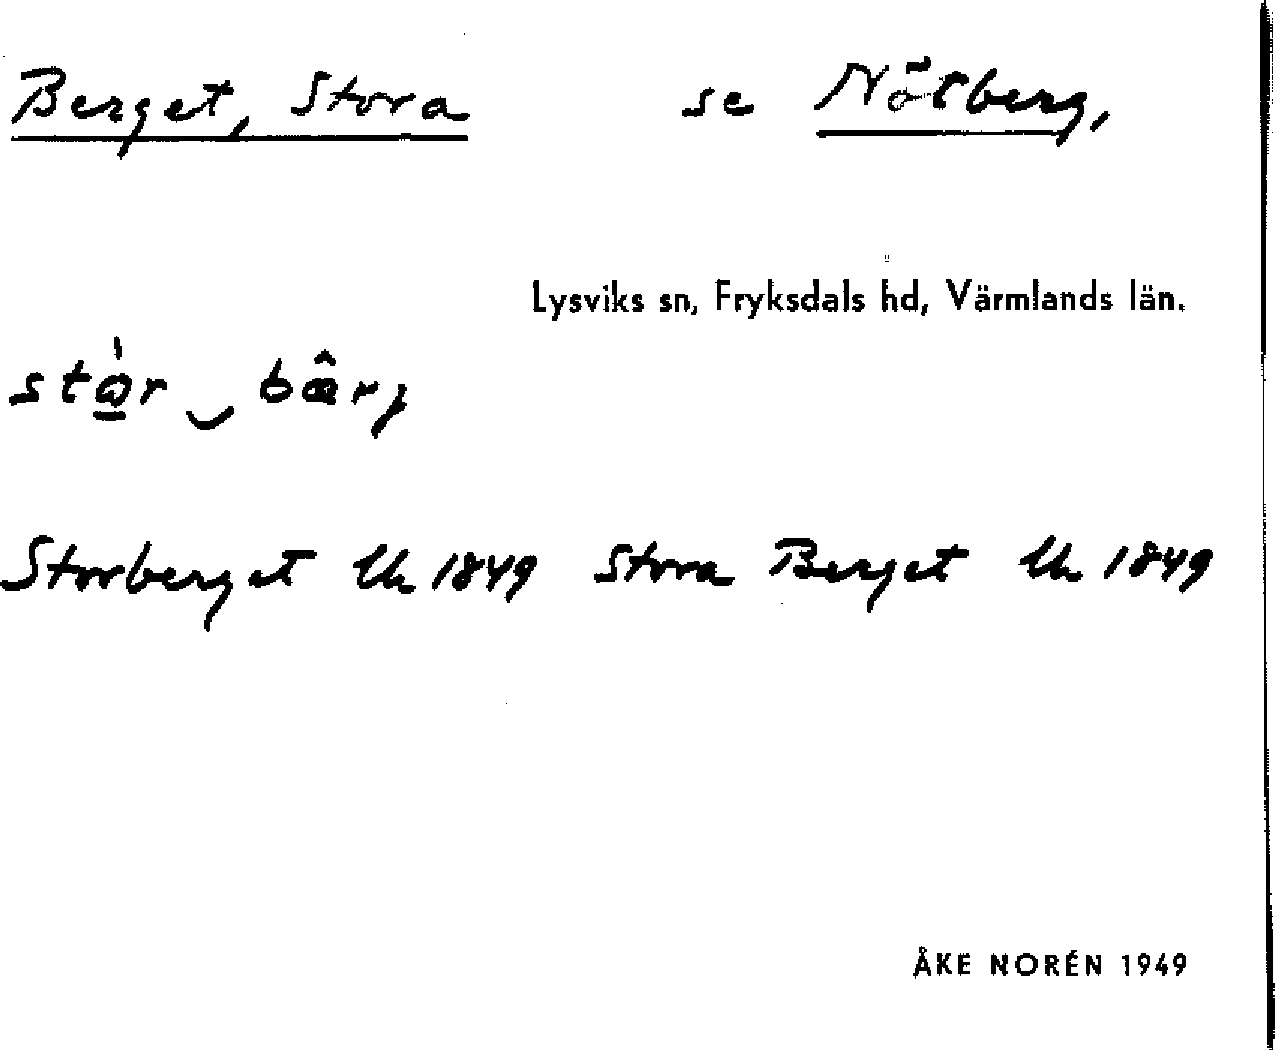 Berget, Stora se Nötberg,
Lysviks sn, Fryksdals hd, Värmlands län.
stǫ̀r ‿ bæ̂rj
Storberget Uk 1849 Stora Berget Uk 1849
ÅKE NORÉN 1949